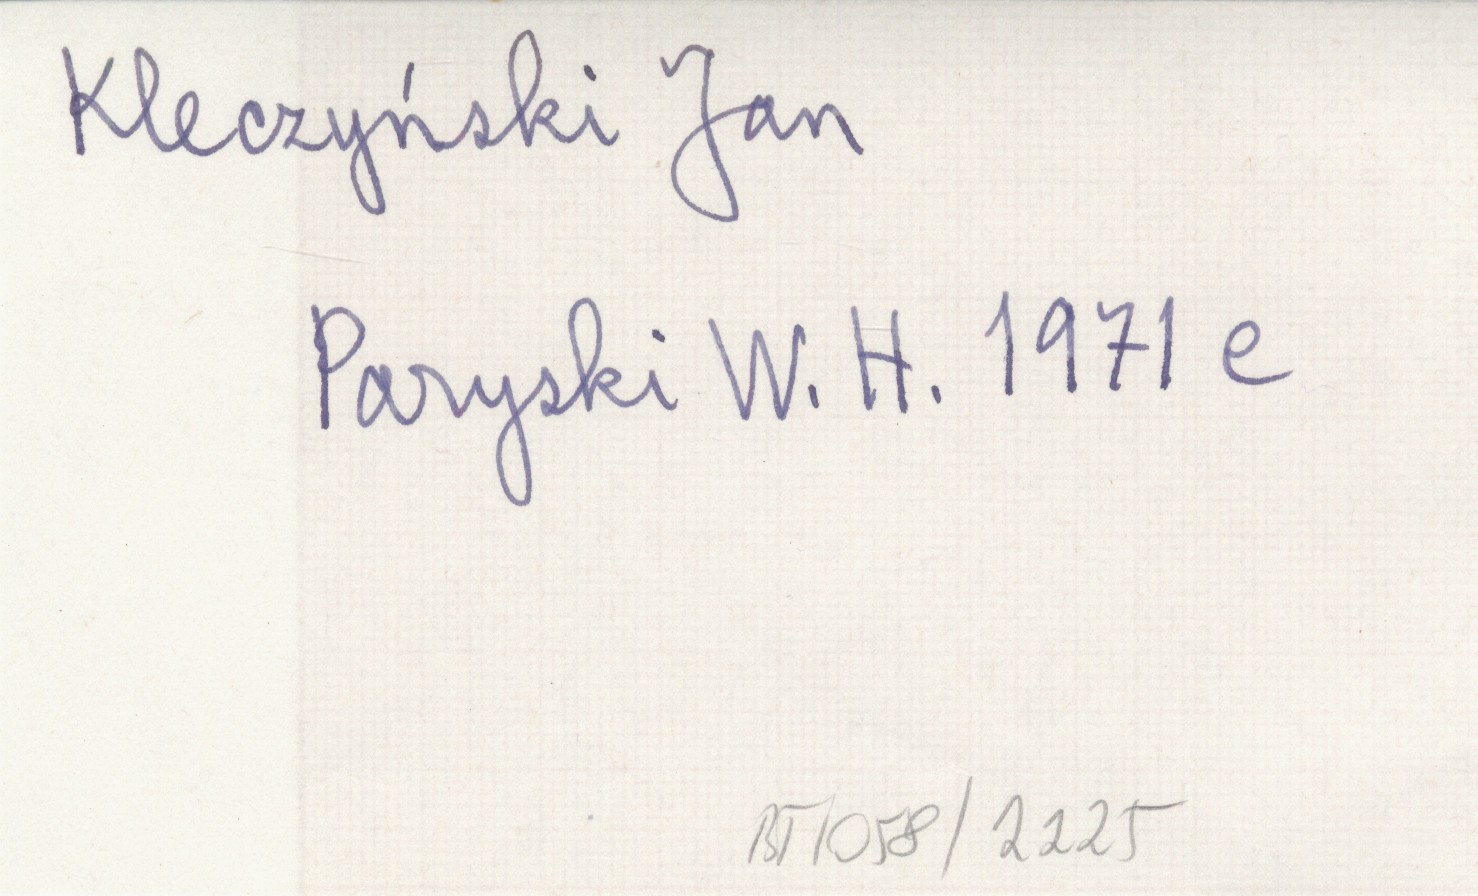 Kleczyński Jan
Paryski W. H. 1971 e
BT/058/2225